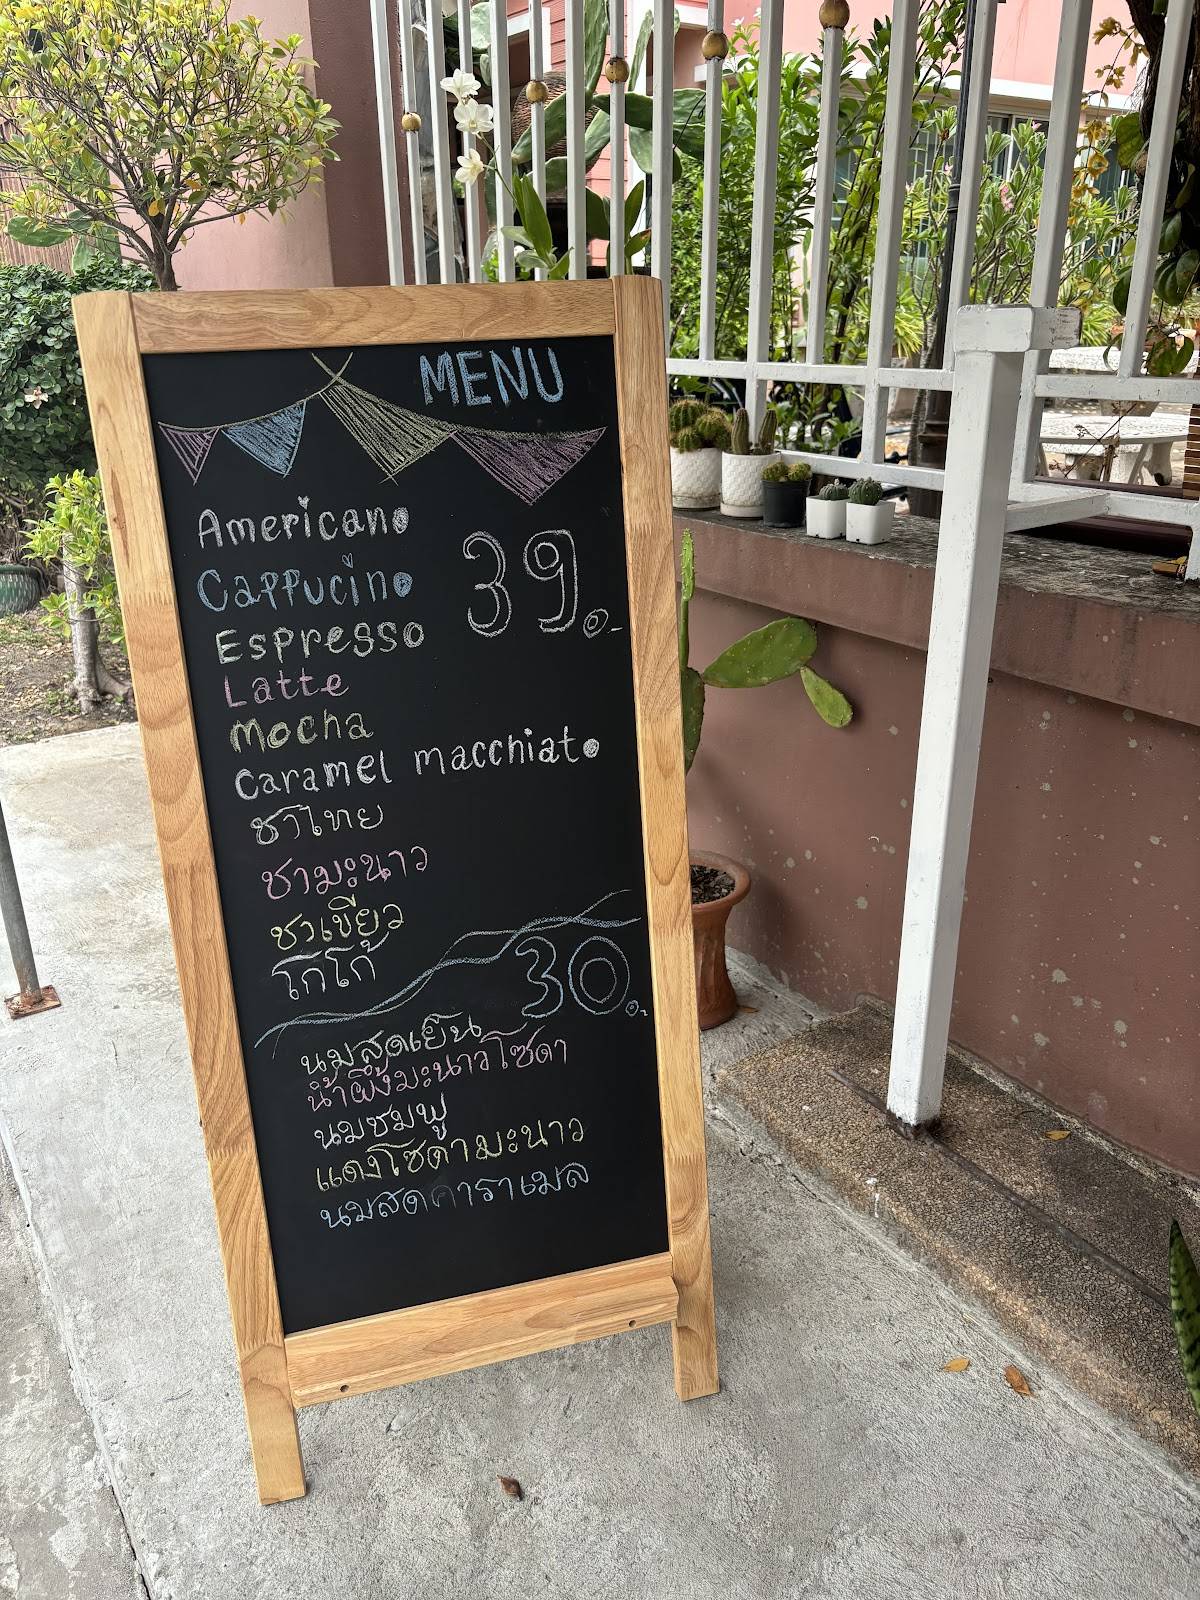 MENU
Americano
Cappucino
39.-
Espresso
Latte
Mocha
caramel macchiato
ชาไทย
ชามะนาว
ชาเขียว
โกโก้
30.-
นมสดเย็น
น้ำผึ้งมะนาวโซดา
นมชมพู
แดงโซดามะนาว
นมสดคาราเมล